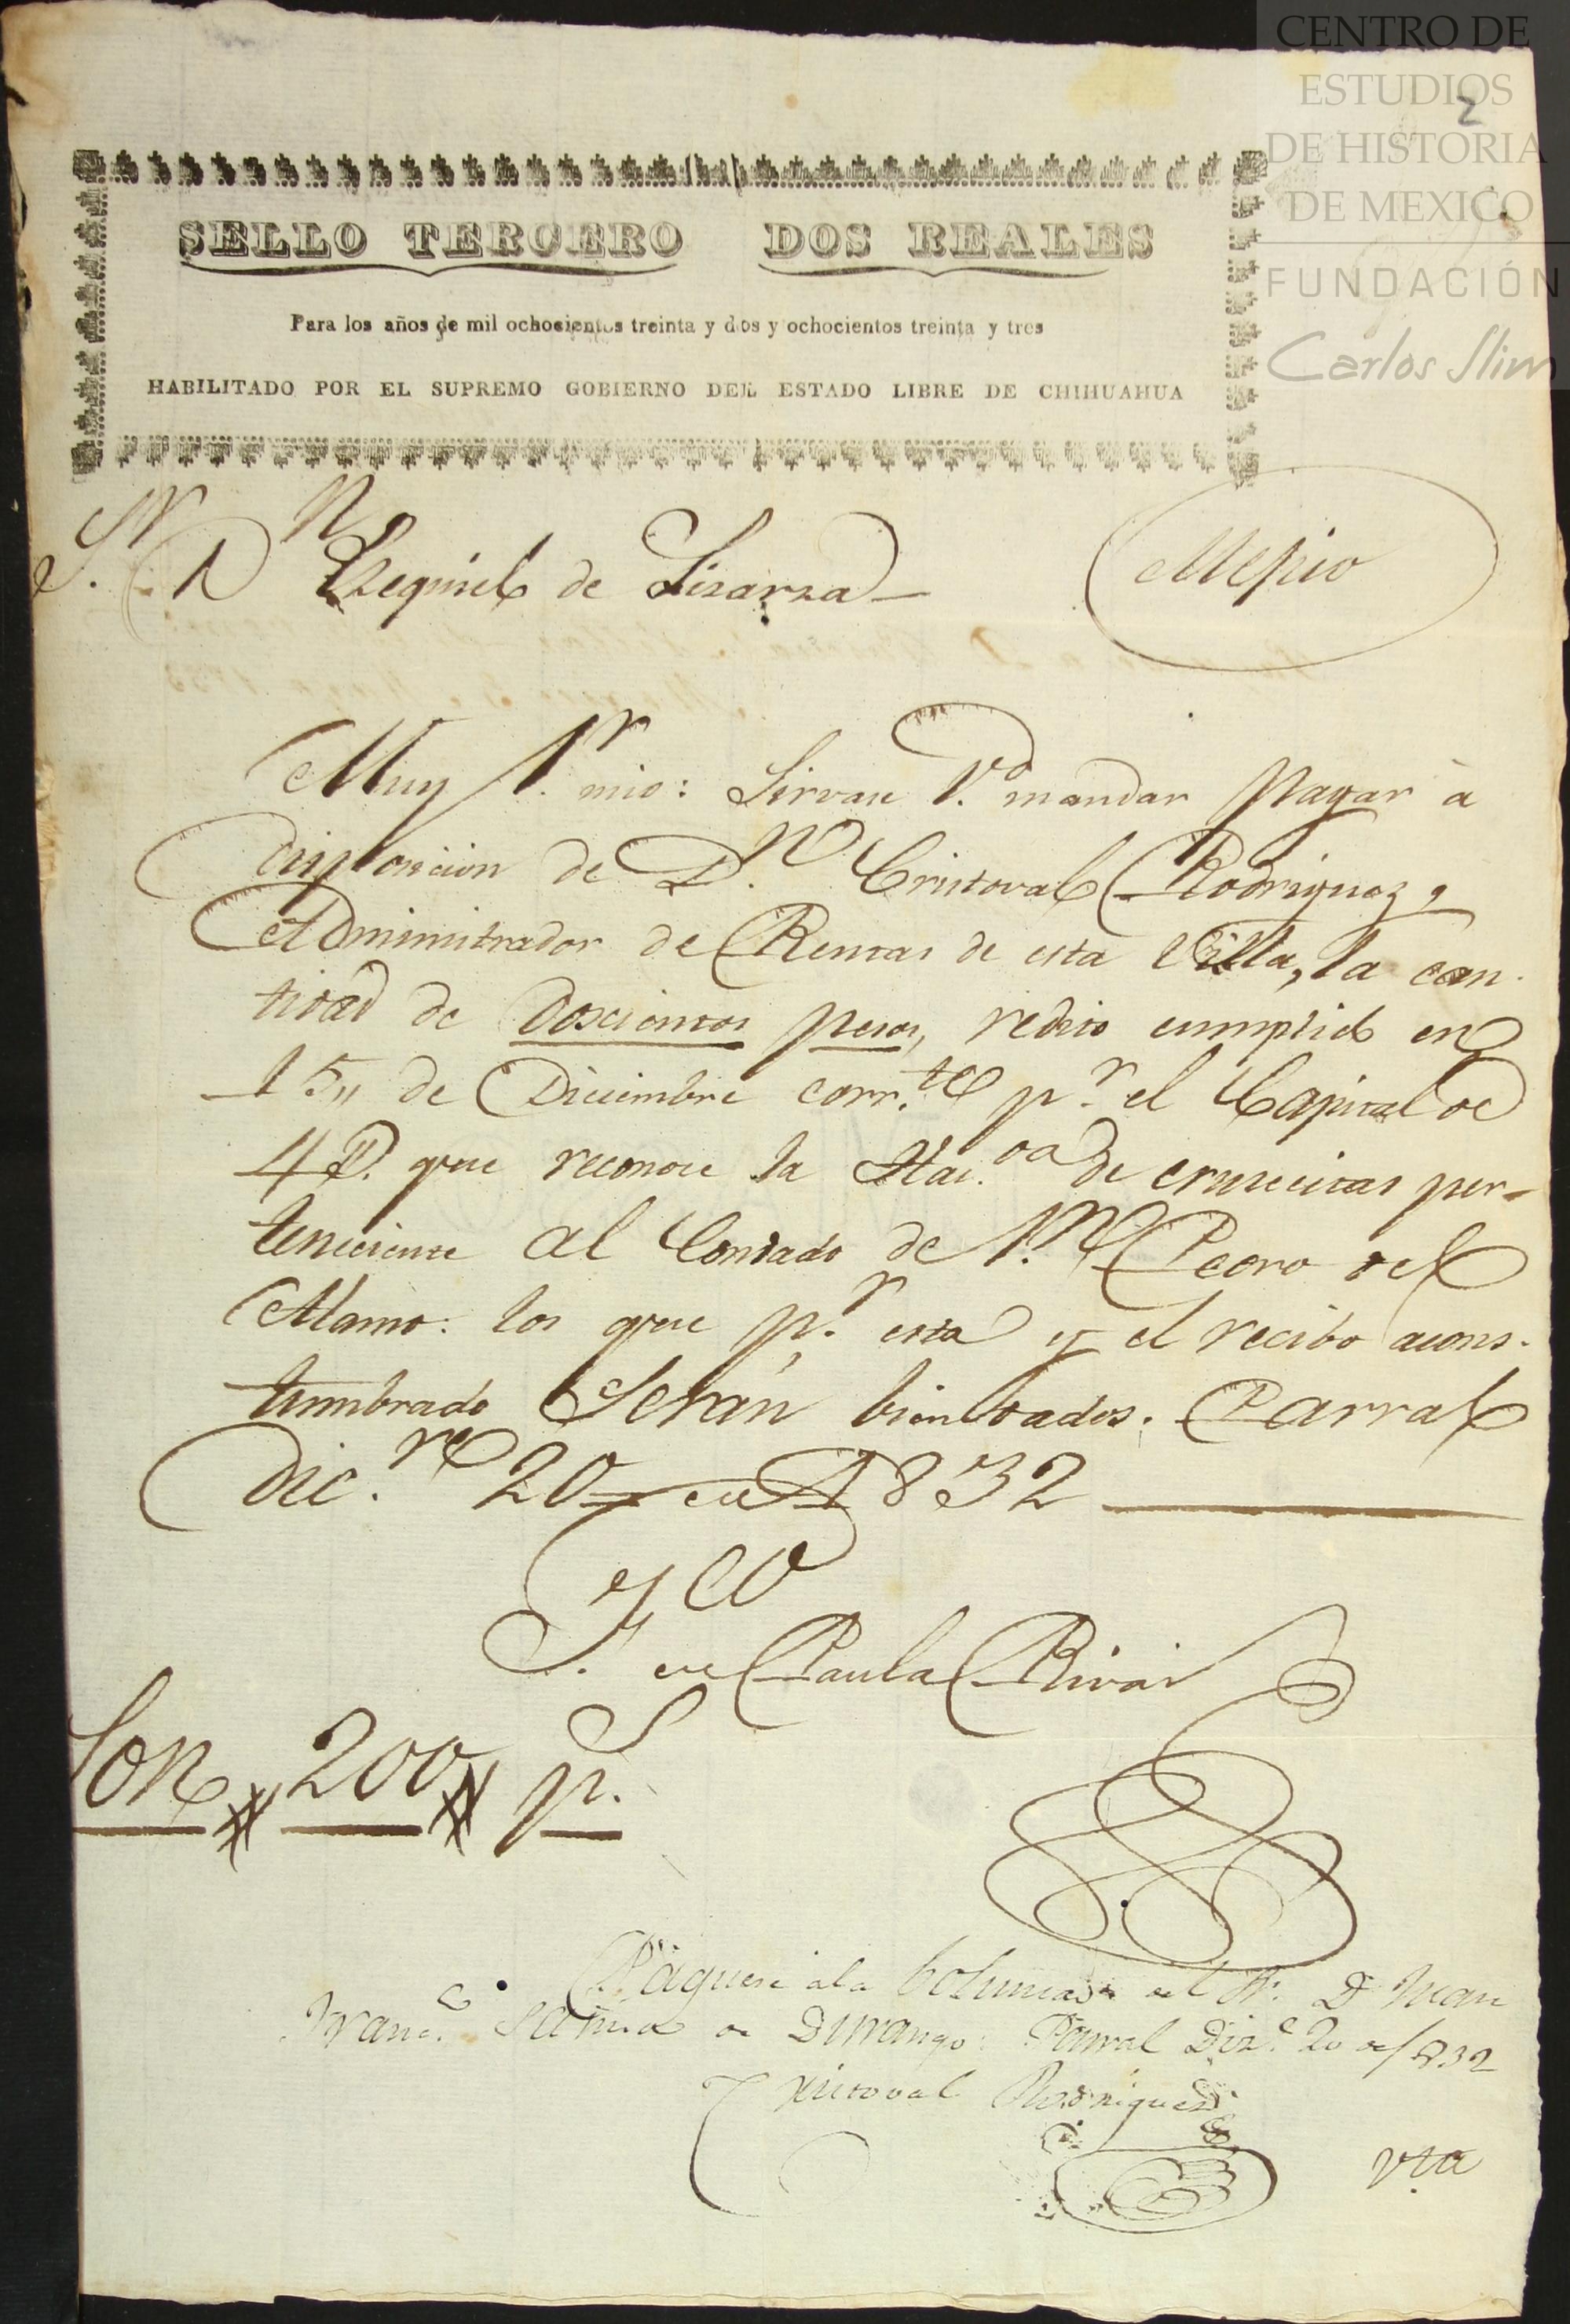 CENTRO DE
ESTUDIOS
DE HISTORIA
DE MEXICO
FUNDACIÓN
Carlos Slim
2
SELLO TERCERO DOS REALES
Para los años de mil ochocientos treinta y dos y ochocientos treinta y tres
HABILITADO POR EL SUPREMO GOBIERNO DEL ESTADO LIBRE DE CHIHUAHUA
Sr. Dn Ezequiel de Lizarza
Mejico
Muy Sr. mio: Sirvase Vd. mandar pagar à
disposicion de Dn. Cristoval Rodriguez,
Administrador de Rentas de esta Villa, la can-
tidad de doscientos pesos, redito cumplido en
15,, de Diciembre corr.te pr. el Capital de
4 D. que reconoce la Hac.da de crucecitas per-
teneciente al Condado de Sn. Pedro del
Alamo: los que pr. esta y el recibo acons-
tumbrado Serán bien dados. Parral
Dic.re 20 de 1832
F. de Paula Rivas
Son 200 p.
Páguese ala del Sr. D Juan
Franc.co de Durango. Parral Diz.e 20 de/832
Xristoval Rodriguez
Vta